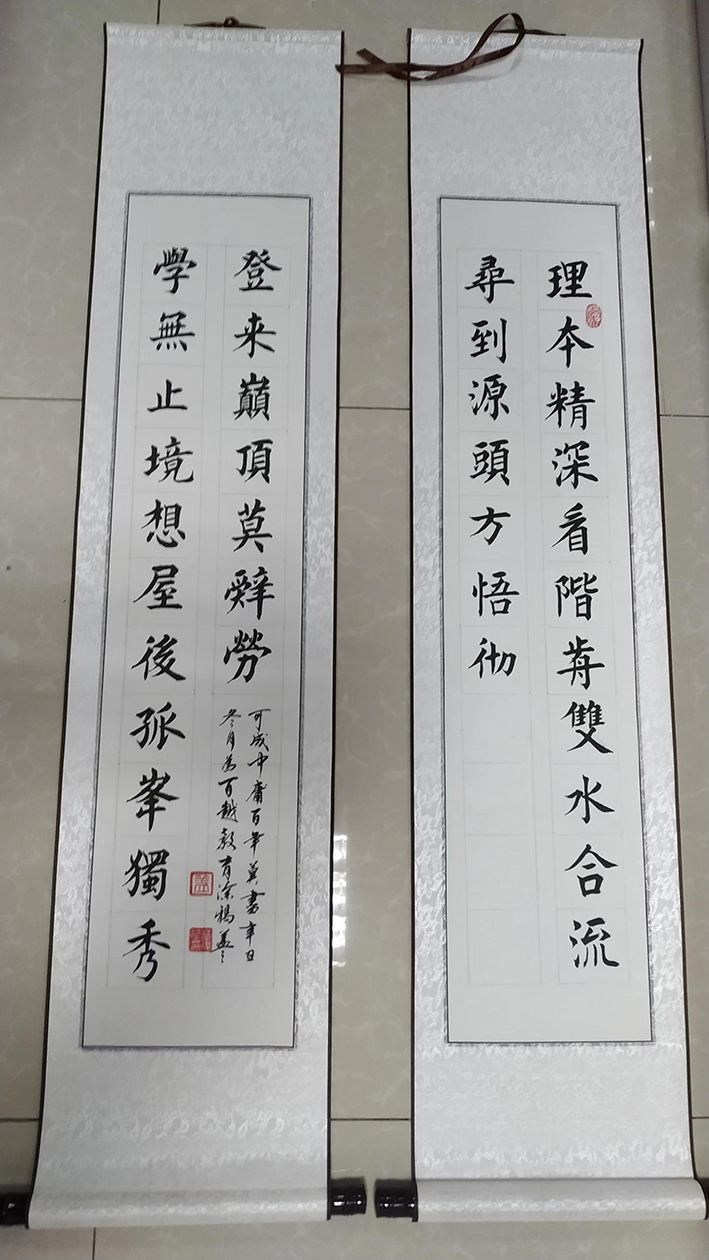 理本精深看階歬雙水合流
尋到源頭方悟彻
學無止境想屋後孤峯獨秀
登来巔頂莫辭勞
可成中庸百年 書辛丑
冬月為百越教育